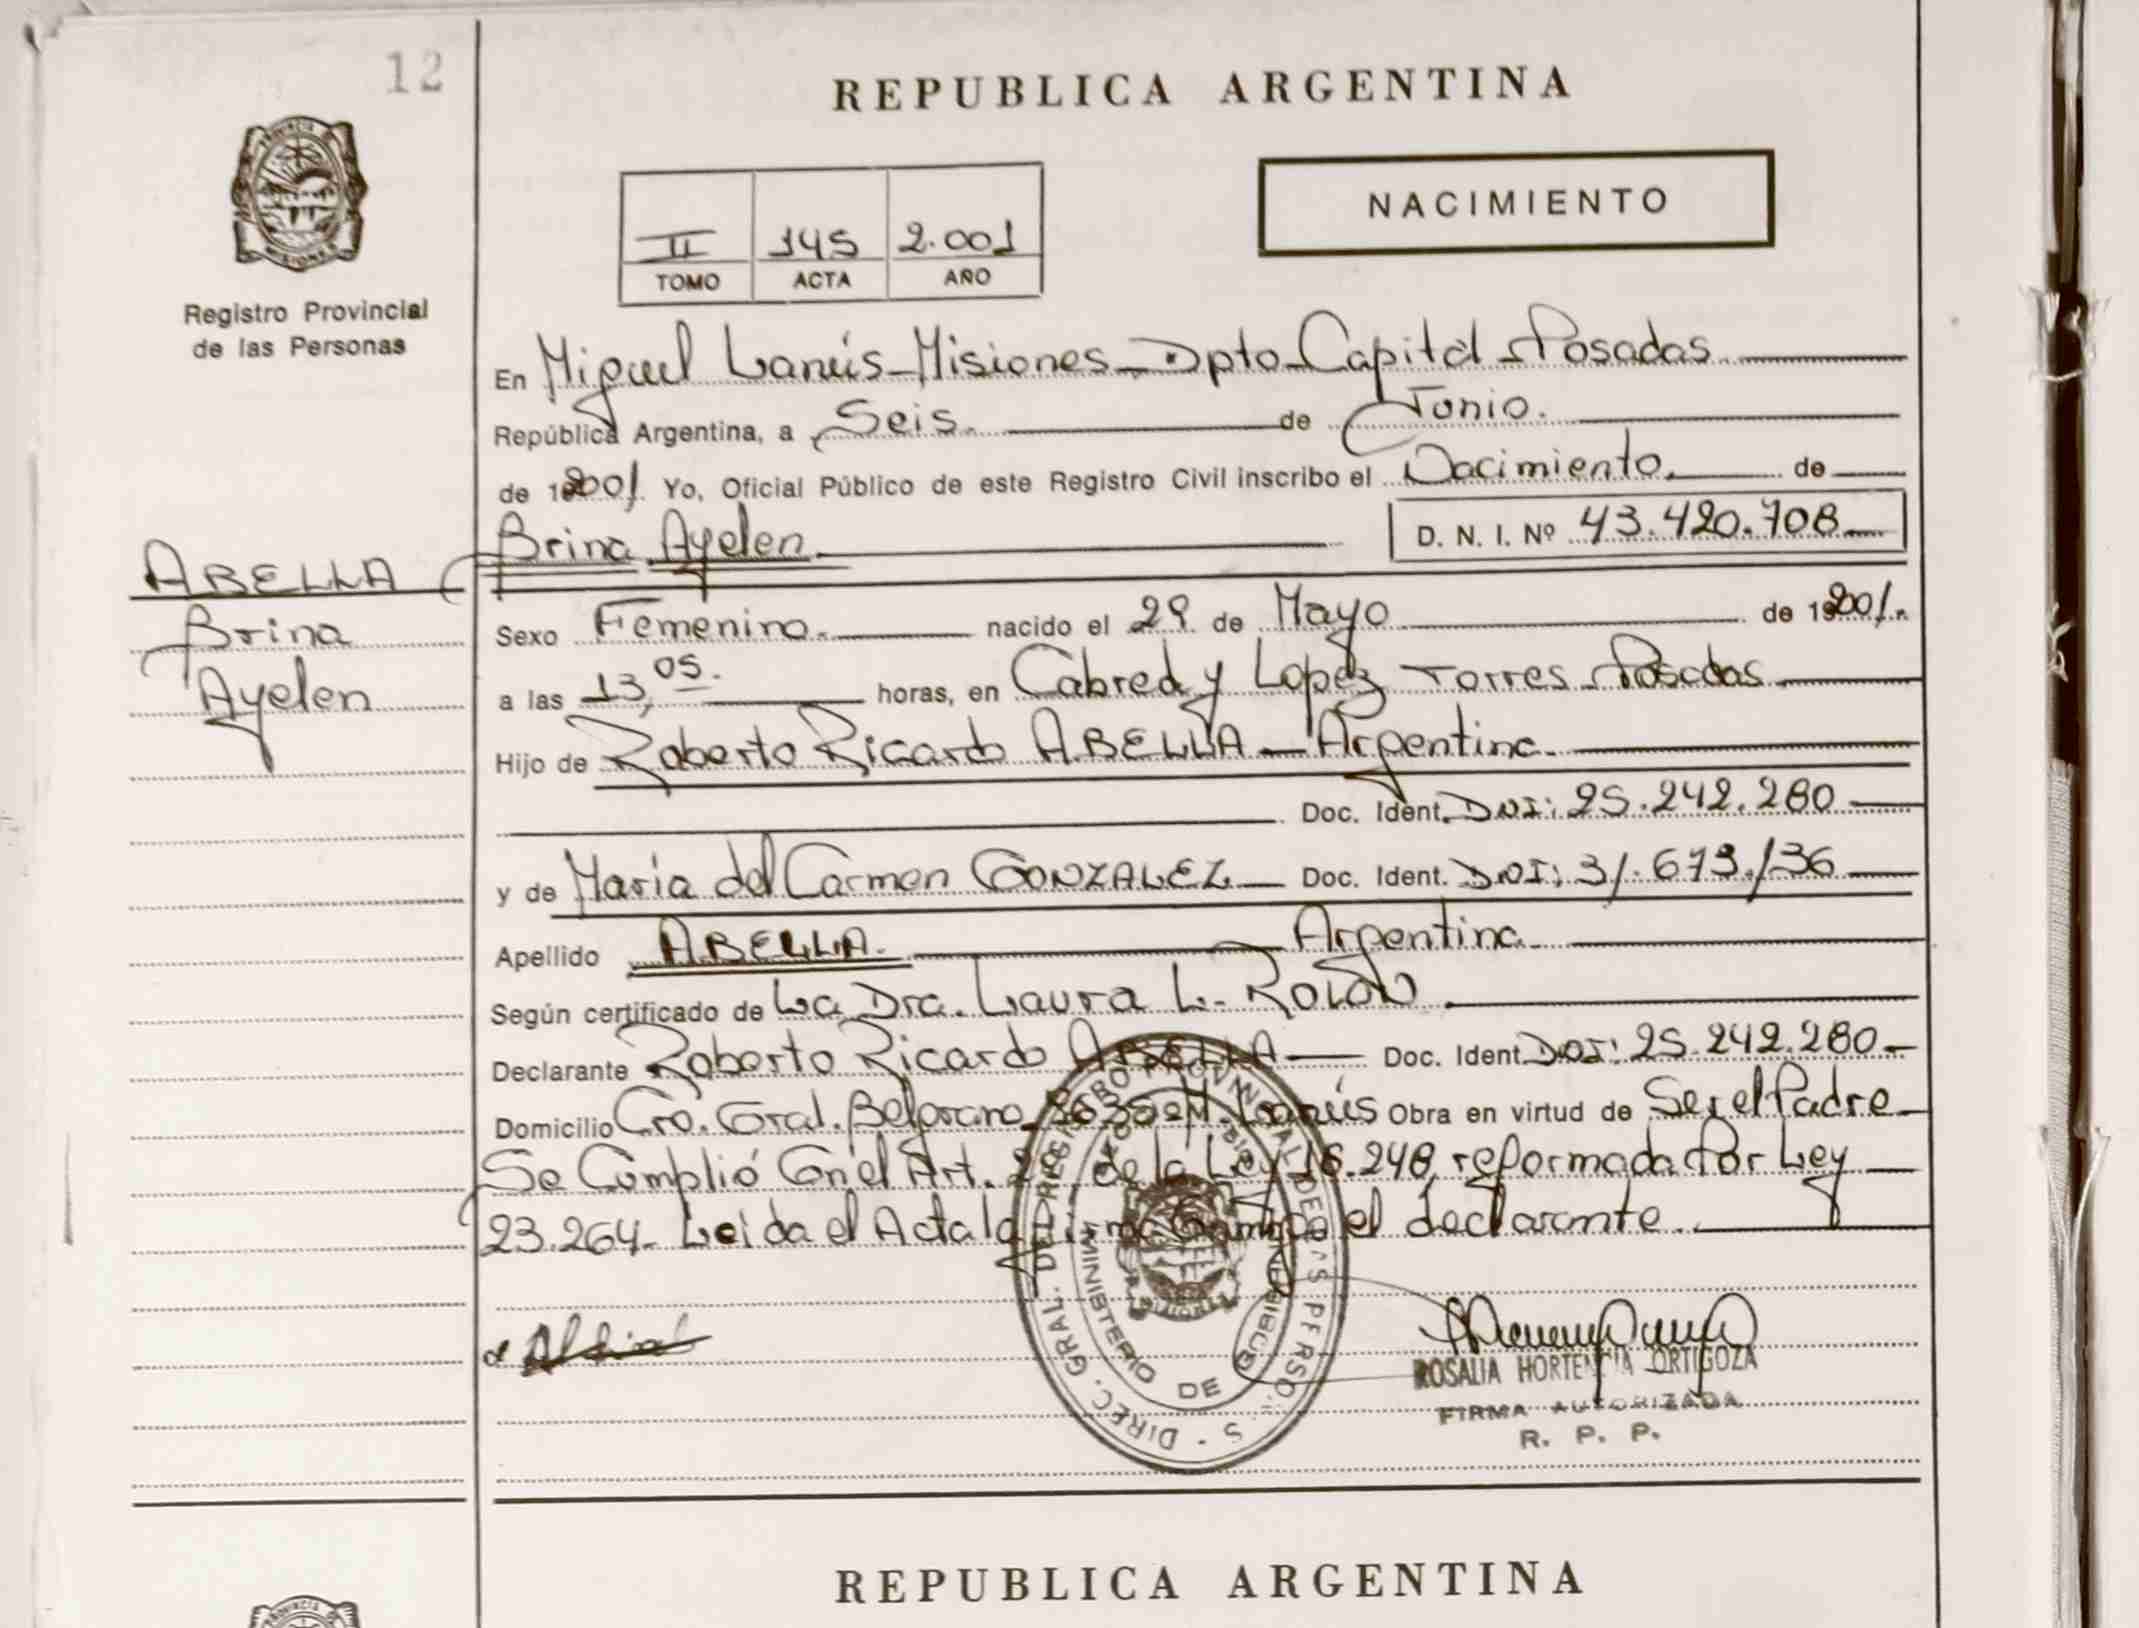 12
REPUBLICA ARGENTINA
PROVINCIA DE
MISIONES
Registro Provincial
de las Personas
II 145 2.001
TOMO ACTA AÑO
NACIMIENTO
En Miguel Lanús - Misiones - Dpto - Capital - Posadas
República Argentina, a Seis. de Junio.
de 2001. Yo, Oficial Público de este Registro Civil inscribo el Nacimiento. de
Brina Ayelen D. N. I. Nº 43.420.708
ABELLA
Brina
Ayelen
Sexo Femenino. nacido el 29 de Mayo de 2001.
a las 13,05. horas, en Cabred y Lopez Torres - Posadas
Hijo de Roberto Ricardo ABELLA - Argentina
Doc. Ident. DNI: 25.242.280
y de Maria del Carmen GONZALEZ Doc. Ident. DNI: 31.673.136
Apellido ABELLA. Argentina
Según certificado de La Dra. Laura L. ROLON
Declarante Roberto Ricardo ABELLA Doc. Ident. DNI: 25.242.280
Domicilio Cro. Gral. Belgrano M. Lanús Obra en virtud de Ser el Padre
Se Cumplió Con el Art. 2º de la Ley 18.248, reformada Por Ley
23.264 - Leida el Acta la firma Conmigo el declarante.
DIREC. GRAL. DEL REGISTRO PROVINCIAL DE LAS PERSONAS
MINISTERIO DE GOBIERNO
ROSALIA HORTENCIA ORTIGOZA
FIRMA AUTORIZADA
R. P. P.
REPUBLICA ARGENTINA